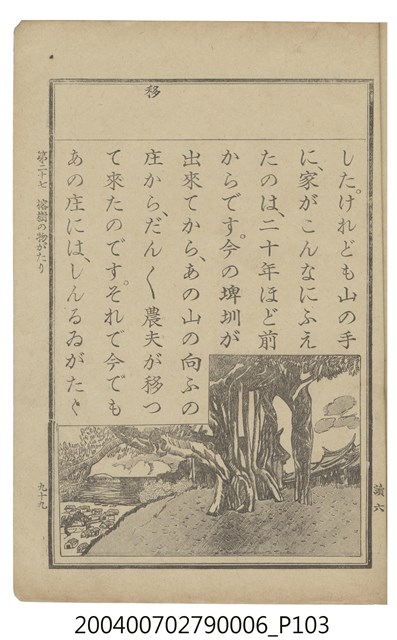 移
した。けれども山の手
に、家がこんなにふえ
たのは、二十年ほど前
からです。今の埤圳が
出來てから、あの山の向ふの
庄から、だん〱農夫が移つ
て來たのです。それで今でも
あの庄には、しんるゐがたく
第二十七 榕樹の物がたり
九十九
讀六
200400702790006_P103